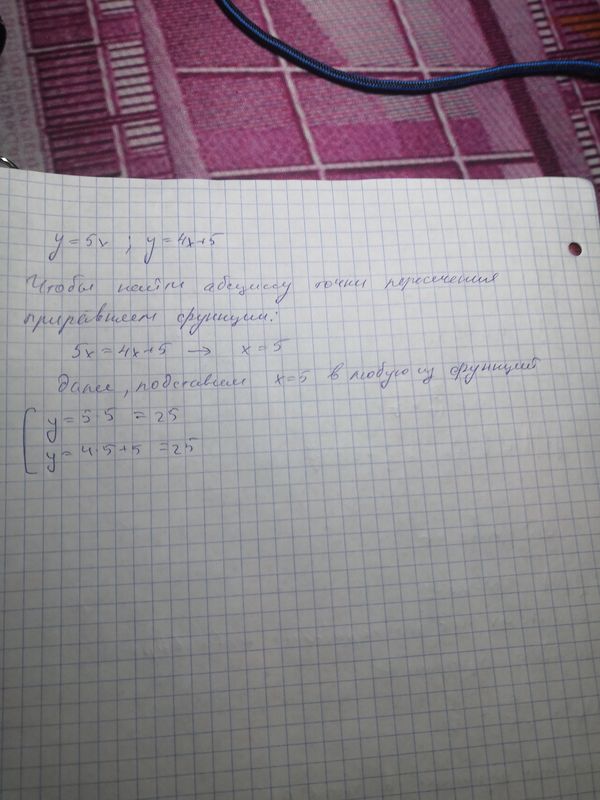 y = 5x ; y = 4x+5
Чтобы найти абсциссу точки пересечения
приравняем функции:
5x = 4x+5 → x = 5
далее, подставим x=5 в любую из функций
y = 5·5 = 25
y = 4·5+5 = 25